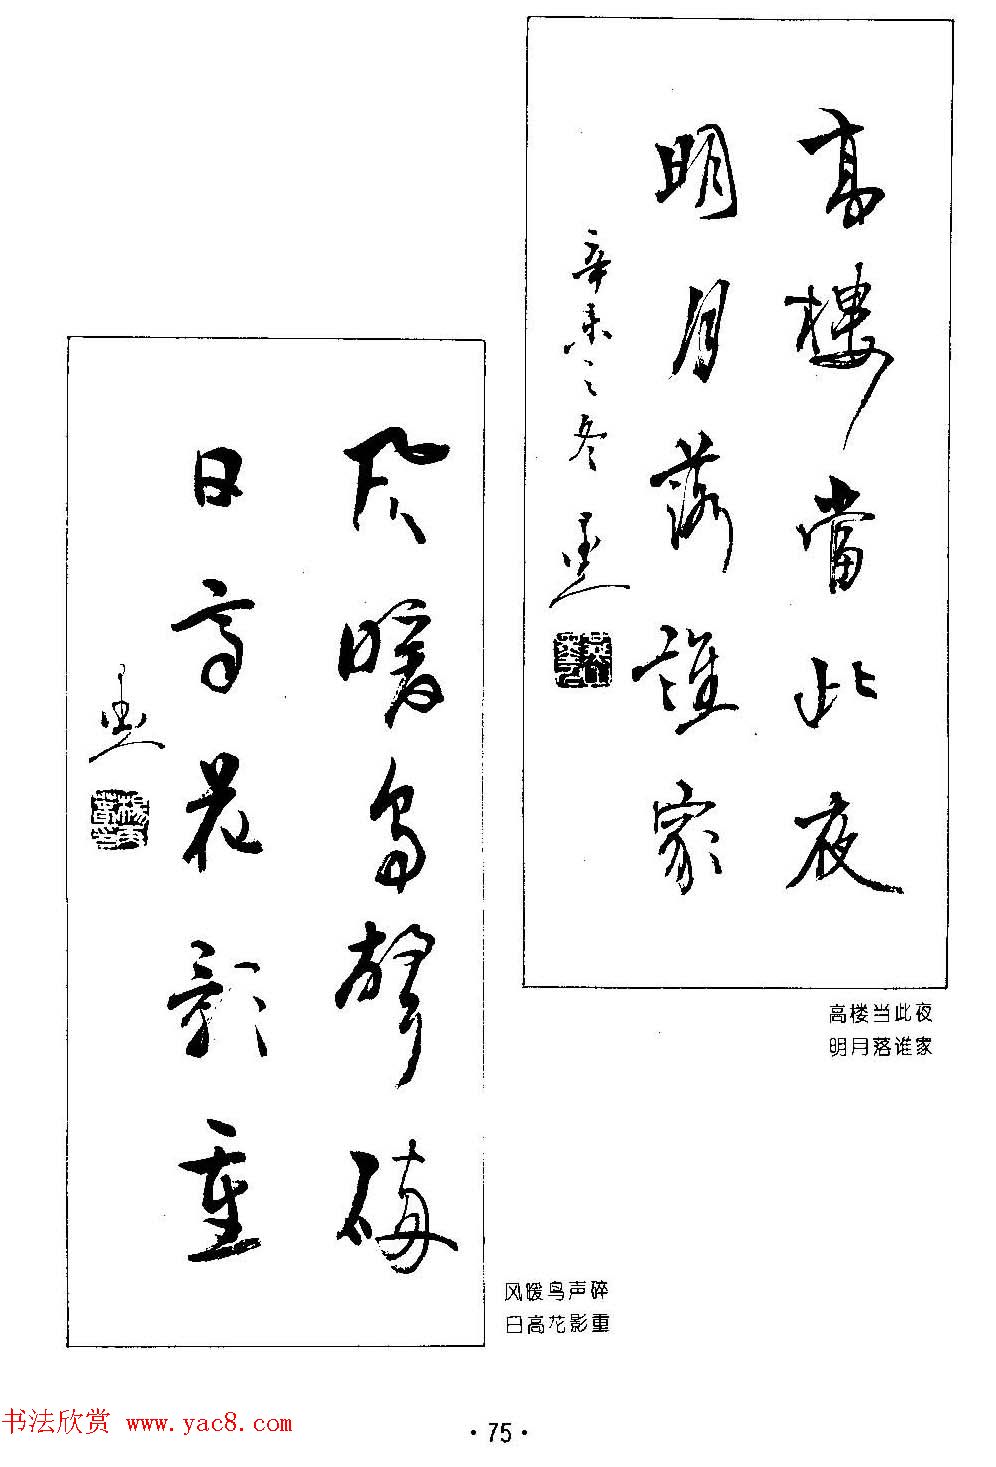 高樓當此夜
明月落誰家
辛未之冬
高楼当此夜
明月落谁家
风暖鸟聲碎
日高花影重
风暖鸟声碎
日高花影重
书法欣赏 www.yac8.com
·75·